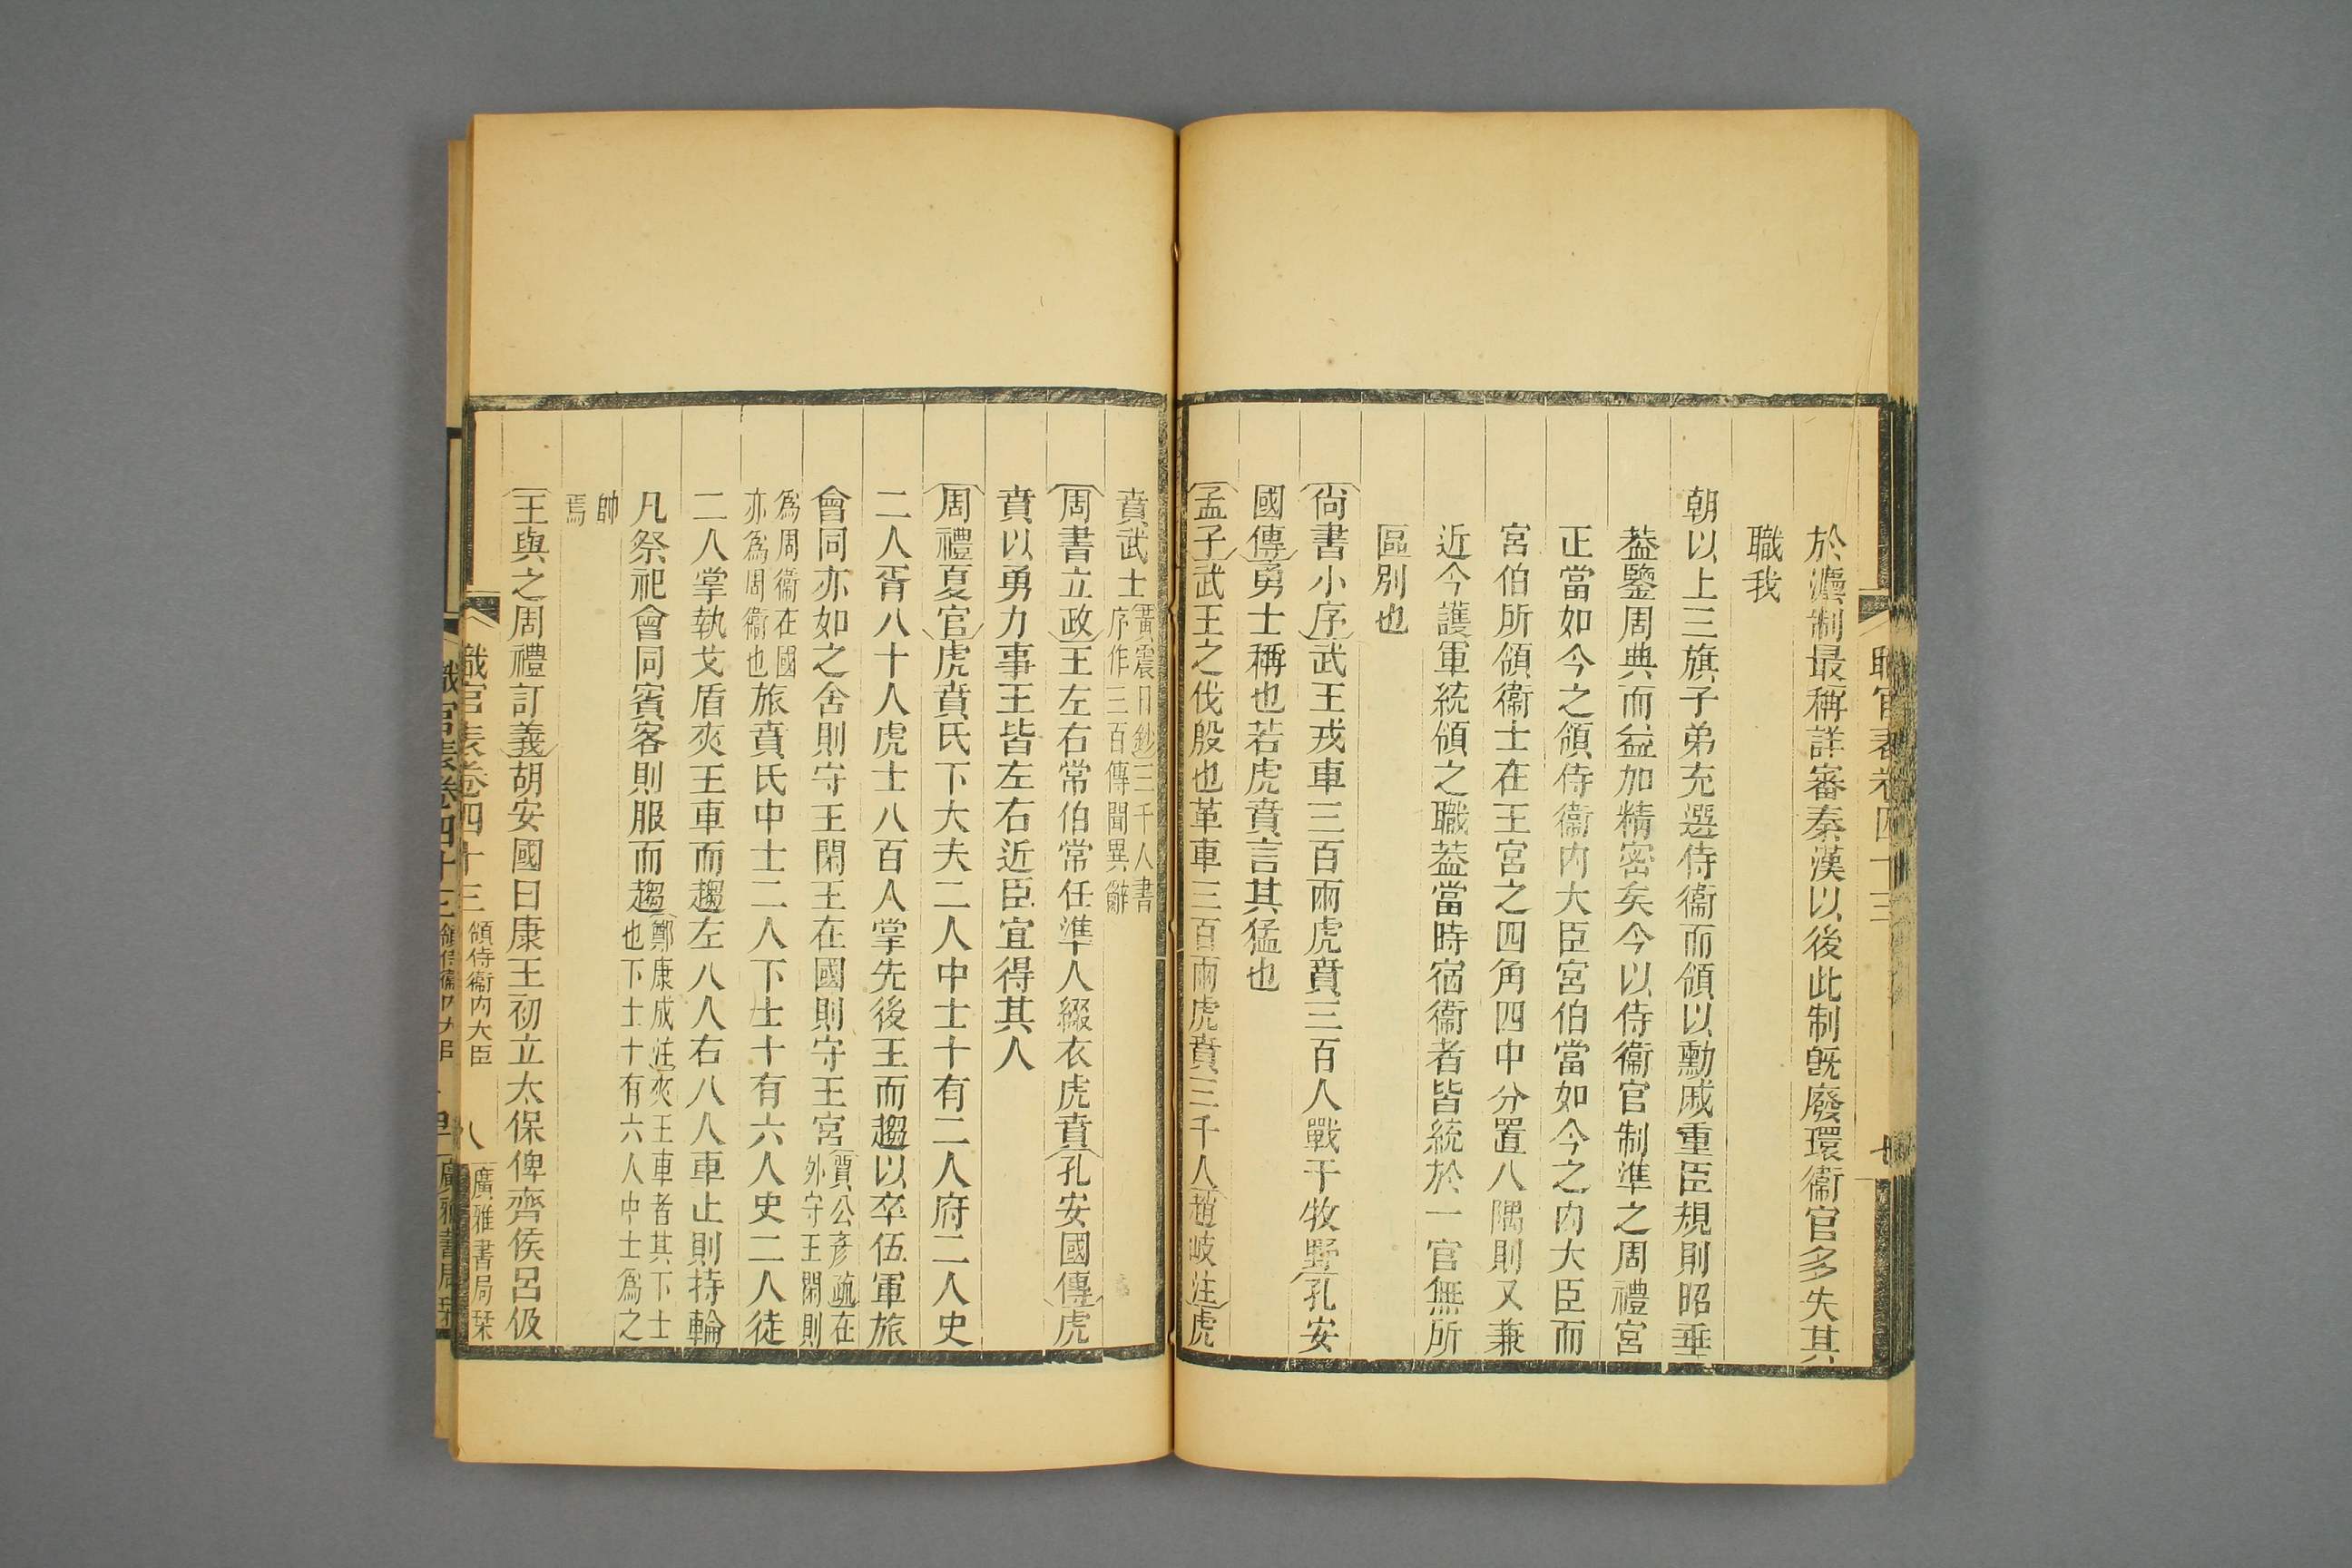 於灋制最稱詳審秦漢以後此制旣廢環衞官多失其
職我
朝以上三旗子弟充選侍衞而領以勳戚重臣規則昭垂
葢鑒周典而益加精密矣今以侍衞官制準之周禮宮
正當如今之領侍衞內大臣宮伯當如今之內大臣而
宮伯所領衞士在王宮之四角四中分置八隅則又兼
近今護軍統領之職葢當時宿衞者皆統於一官無所
區別也
尙書小序武王戎車三百兩虎賁三百人戰于牧野孔安
國傳勇士稱也若虎賁言其猛也
孟子武王之伐殷也革車三百兩虎賁三千人趙岐注虎
賁武士黃震日鈔三千人書
序作三百傳聞異辭
周書立政王左右常伯常任準人綴衣虎賁孔安國傳虎
賁以勇力事王皆左右近臣宜得其人
周禮夏官虎賁氏下大夫二人中士十有二人府二人史
二人胥八十人虎士八百人掌先後王而趨以卒伍軍旅
會同亦如之舍則守王閑王在國則守王宮賈公彥疏在
外守王閑則
爲周衞在國
亦爲周衞也旅賁氏中士二人下士十有六人史二人徒
二人掌執戈盾夾王車而趨左八人右八人車止則持輪
凡祭祀會同賓客則服而趨鄭康成注夾王車者其下士
也下士十有六人中士爲之
帥
焉
王與之周禮訂義胡安國曰康王初立太保俾齊侯呂伋
職官表卷四十三 領侍衞內大臣 八 廣雅書局栞